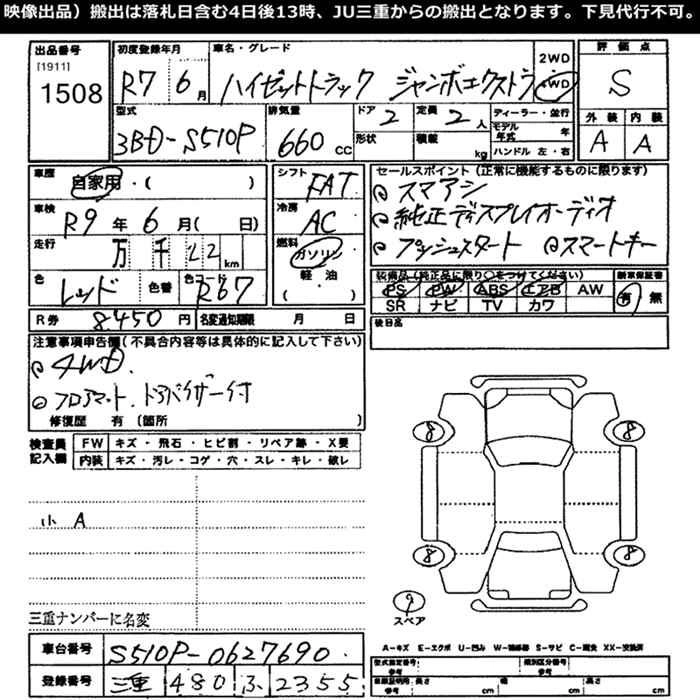 映像出品）搬出は落札日含む4日後13時、JU三重からの搬出となります。下見代行不可。
出品番号 初度登録年月 車名・グレード 評価点
[1911] 1508
R7 6月 ハイゼットトラック ジャンボエクストラ 2WD 4WD S
型式 排気量 ドア 定員 ディーラー・並行 外装 内装
3BD-S510P 660cc 2 2人 モデル年式 年 A A
形状 積載 kg ハンドル 左・右
車歴 自家用・( ) シフト FAT セールスポイント（正常に機能するものに限ります）
スマアシ
車検 R9年6月( 日) 冷房 AC 純正ディスプレイオーディオ
走行 万 千 22km 燃料 ガソリン プッシュスタート スマートキー
軽油 ( )
色 レッド 色番 色コード R67
装備品（純正品に限り○をつけてください） 新車保証書
PS PW ABS エアB AW 有 無
SR ナビ TV カワ
R券 8450円 名変通知期限 月 日
後日品
注意事項申告欄（不具合内容等は具体的に記入して下さい）
4WD
フロアマット、ドアバイザー付
修復歴 有（箇所 )
検査員記入欄 FW キズ・飛石・ヒビ割・リペア跡・X要
内装 キズ・汚レ・コゲ・穴・スレ・キレ・破レ
8 8
小 A
8 8
9
スペア
三重ナンバーに名変
A-キズ E-エクボ U-凹み W-補修跡 S-サビ C-腐食 XX-交換済
車台番号 S510P-0627690
登録番号 三重 480 ふ 2355
型式指定番号 参考 類別区分番号 参考
長さ cm 幅 cm 高さ cm